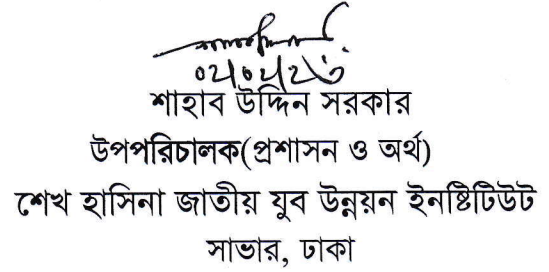 ০২/০২/২৬
শাহাব উদ্দিন সরকার
উপপরিচালক(প্রশাসন ও অর্থ)
শেখ হাসিনা জাতীয় যুব উন্নয়ন ইনষ্টিটিউট
সাভার, ঢাকা